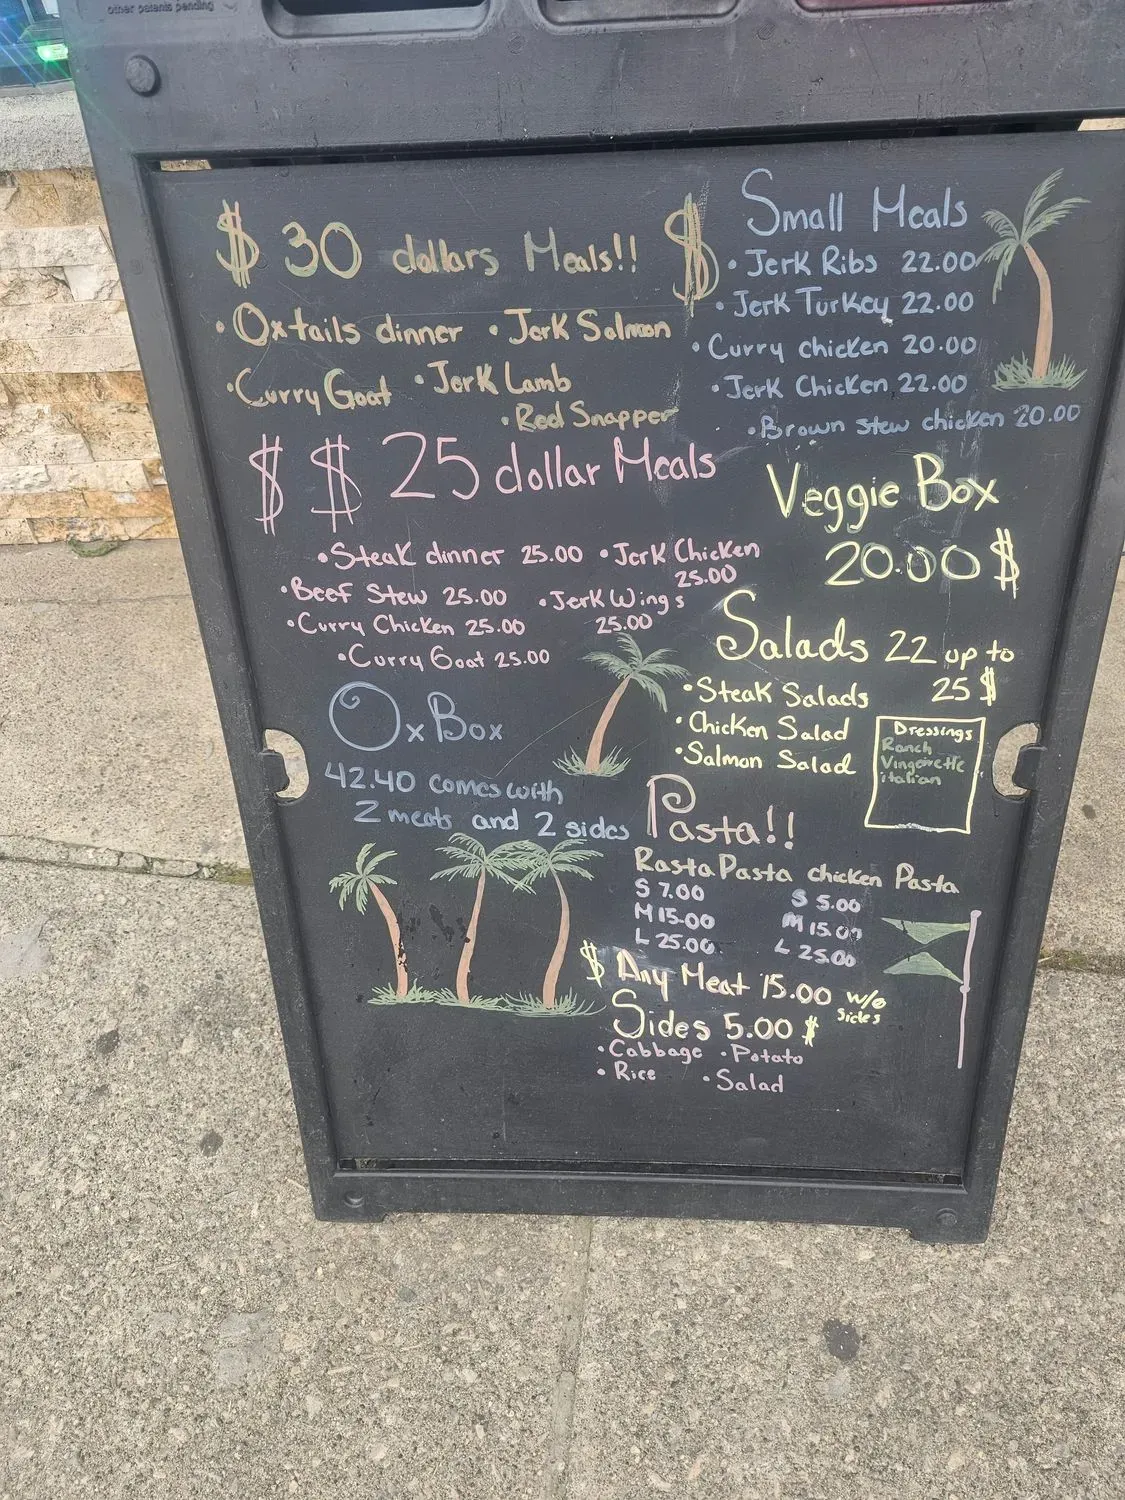 other patents pending
$ 30 dollars Meals!! $
• Oxtails dinner • Jerk Salmon
• Curry Goat • Jerk Lamb
• Red Snapper
$ $ 25 dollar Meals
• Steak dinner 25.00 • Jerk Chicken
25.00
• Beef Stew 25.00 • Jerk Wings
25.00
• Curry Chicken 25.00
• Curry Goat 25.00
Ox Box
42.40 comes with
2 meats and 2 sides
Small Meals
• Jerk Ribs 22.00
• Jerk Turkey 22.00
• Curry chicken 20.00
• Jerk Chicken 22.00
• Brown stew chicken 20.00
Veggie Box
20.00 $
Salads 22 up to
25 $
• Steak Salads
• Chicken Salad
• Salmon Salad
Dressings
Ranch
Vingairette
italian
Pasta!!
Rasta Pasta chicken Pasta
S 7.00 S 5.00
M 15.00 M 15.00
L 25.00 L 25.00
$ Any Meat 15.00 w/o
sides
Sides 5.00 $
• Cabbage • Potato
• Rice • Salad